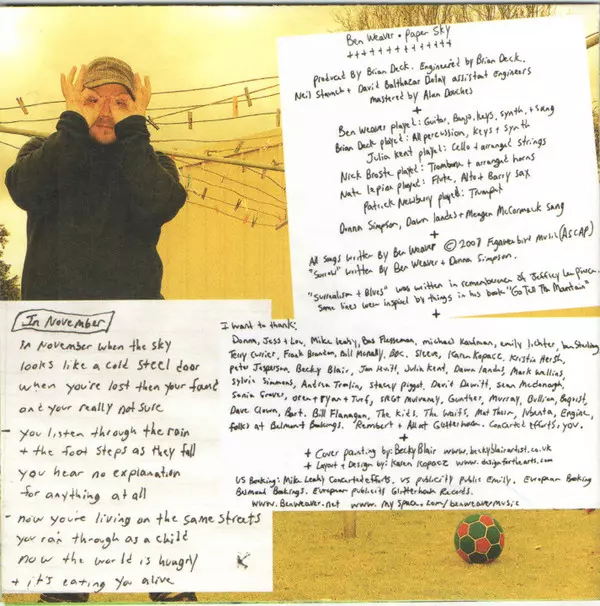 Ben Weaver • Paper Sky
+++++++++++++++
produced By Brian Deck. Engineered by Brian Deck.
Neil Strauch + David Balthazar assistant Engineers
mastered by Alan Douches
+
Ben Weaver played: Guitar, Banjo, keys, synth, + sang
Brian Deck played: All percussion, keys + synth
Julia Kent played: Cello + arranged strings
Nick Broste played: Trombone + arranged horns
Nate Lepine played: Flute, Alto + Barry sax
Patrick Newbury played: Trumpet
Donna Simpson, Dawn Landes + Meagen McCormack sang
+
All songs written By Ben Weaver © 2007 Music (ASCAP)
"Sorrow" written By Ben Weaver + Donna Simpson.
"Surrealism + Blues" was written in rememberence of Jeffrey
some lines were inspired by things in his book "Go Tell The Mountain"
+
In November
in November when the sky
looks like a cold steel door
when you're lost then your found
and your really not sure
- you listen through the rain
+ the foot steps as they fall
you hear no explanation
for anything at all
- now you're living on the same streets
you ran through as a child
now the world is hungry
+ it's eating you alive
I want to thank:
Donna, Jess + Lou, Mike Leahy, Bas Flesseman, michael Kaufman, emily lichter,
Terry Currier, Frank Brandon, Bill McNally, Sleeve, Karen Kopacz, Kristin Hersh,
peter Jasperson, Becky Blair, Jon Hewitt, Julia Kent, Dawn landes, Mark Wallis,
sylvie Simmons, Andrea Tomlin, stacey piggot, David Dewitt, Sean McDonagh,
Sonia Graves, oren + Ryan + Turf, SRGT Mulvaney, Gunther, Murray, Bullion,
Dave Clown, Bart. Bill Flanagan, The kids, The Waifs, Mat Thorn, Engine,
folks at Belmont Bookings. Rembert + All at Glitterhouse. Concerted efforts, you.
+
+ Cover painting by: Becky Blair www.beckyblairartist.co.uk
+ Layout + Design by: Karen Kopacz www.designforthearts.com
US Booking: Mike Leahy Concerted efforts. US publicity Public Emily. European Booking
Belmond Bookings. European publicity Glitterhouse Records.
www.Benweaver.net www.myspace.com/benweavermusic